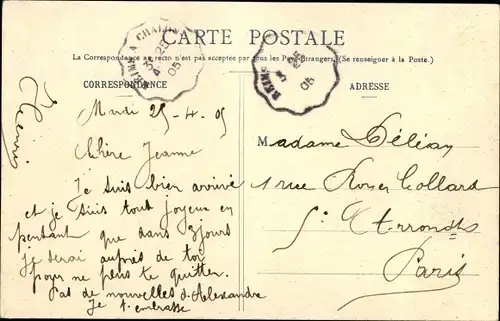 CARTE POSTALE
La Correspondance au recto n'est pas acceptée par tous les Pays Etrangers. (Se renseigner à la Poste.)
CORRESPONDANCE
ADRESSE
REIMS A CHALONS
25
4
05
REIMS
25
05
Henri
Mardi 25-4-05
Chère Jeanne
Je suis bien arrivé
et je suis tout joyeux en
pensant que dans 3 jours
Je serai auprès de toi
pour ne plus te quitter.
Pas de nouvelles d'Alexandre
Je t'embrasse
Madame
1 rue Royer Collard
5e Arrondt
Paris